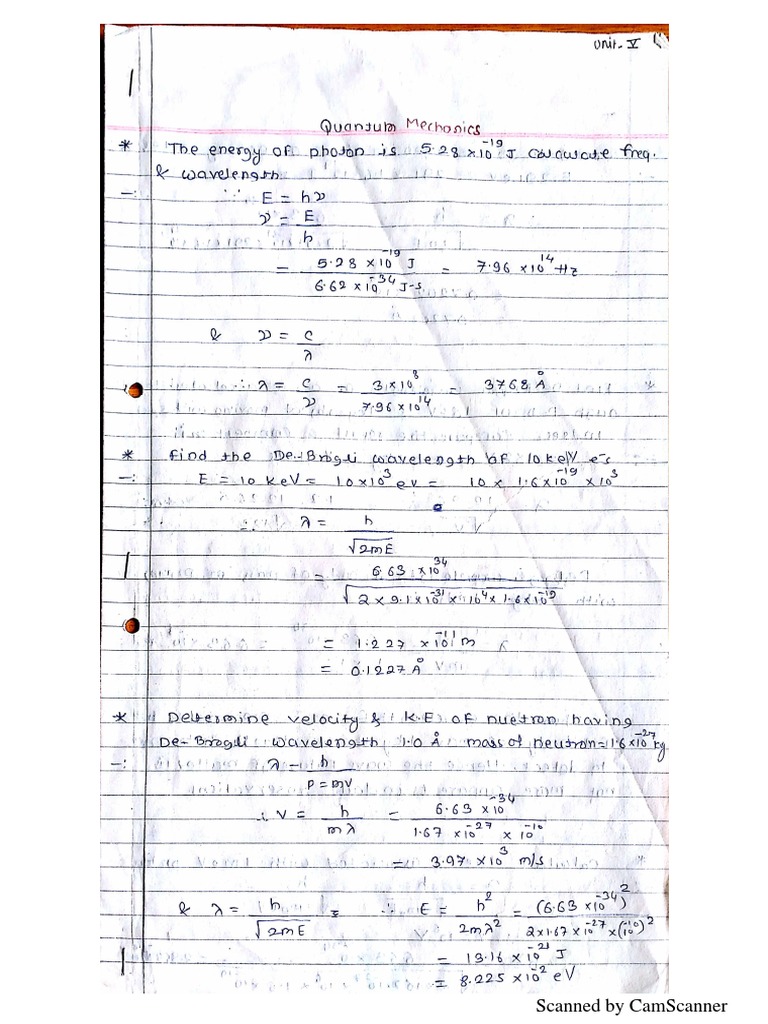 Unit-V
Quantum Mechanics
* The energy of photon is 5.28 ×10⁻¹⁹ J calculate freq.
& wavelength
-: ∴ E = hν
ν = E/h
= 5.28 ×10⁻¹⁹ J / 6.62 ×10⁻³⁴ J-s = 7.96 ×10¹⁴ Hz
& ν = c/λ
λ = c/ν = 3×10⁸ / 7.96 ×10¹⁴ = 3768 Å
* find the De-Brogli wavelength of 10 keV e⁻s
-: E = 10 keV = 10×10³ ev = 10 × 1.6×10⁻¹⁹ ×10³
λ = h / √2mE
= 6.63 ×10³⁴ / √2 × 9.1×10⁻³¹ × 10⁴ × 1.6×10⁻¹⁹
= 1.227 ×10⁻¹¹ m
= 0.1227 Å
* Determine velocity & K.E of nuetron having
De-Brogli wavelength 1.0 Å mass of neutron = 1.6×10⁻²⁷ kg
-: λ = h / p = mv
∴ V = h/mλ = 6.63 ×10⁻³⁴ / 1.67 ×10⁻²⁷ × 10⁻¹⁰
= 3.97 ×10³ m/s
& λ = h / √2mE = ∴ E = h² / 2mλ² = (6.63 ×10⁻³⁴)² / 2×1.67×10⁻²⁷×(10⁻¹⁰)²
= 13.16 ×10⁻²¹ J
= 8.225 ×10⁻² eV
Scanned by CamScanner